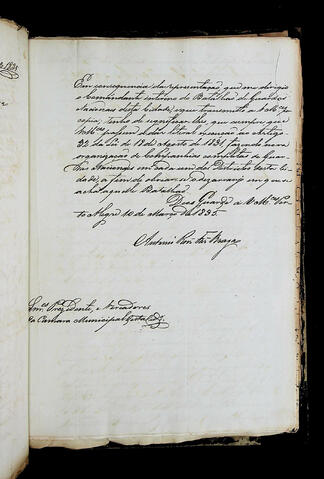 Em consequencia da representação, que me dirigio
o Commandante interino do Batalhão de Guardas
Nacionaes desta Cidade, e que transmitto a V. M.ces por
copia, tenho de significar-lhes que cumpre que
V. M.ces passem a dar literal execução ao Artigo
32 da Lei de 18 de Agosto de 1831, fazendo nova
organização de Companhias completas de Guar-
das Nacionaes em cada um dos Districtos desta Ci-
dade, a fim de obviar-se o desarranjo em que se
acha aquelle Batalhão.
Deos Guarde a V. M.ces Por-
to Alegre 10 de Março de 1835.
Antonio Roiz Fer.s Braga
Snr.s Prezidente, e Vereadores
da Camara Municipal desta Cid.e